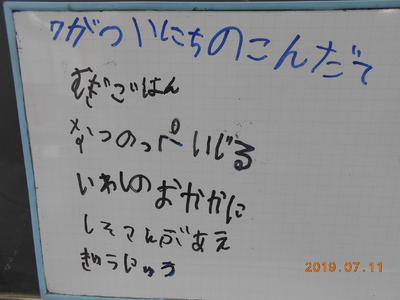 7がつ11にちのこんだて
むぎごはん
なつのっぺいじる
いわしのおかかに
しそこんぶあえ
ぎゅうにゅう
2019.07.11